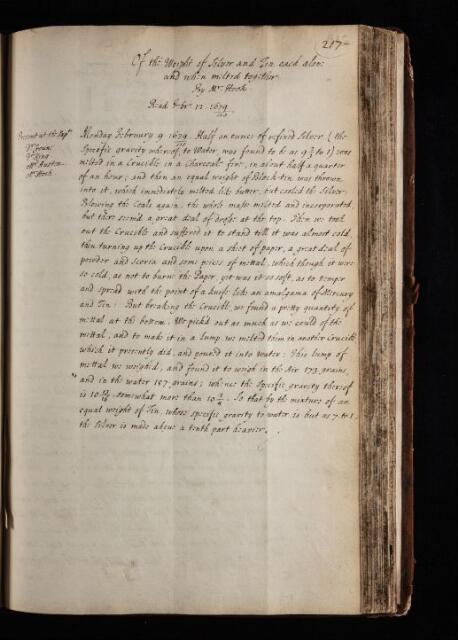 217
Of the Weight of Silver and Tin each alone
and when melted together
By Mr Hook
Read Febr. 12. 1679
Present at the Expt
Dr Croun
Dr King
Mr Hook
Monday February 9 1679. Half an ounce of refined Silver (the
specific gravity wherof, to Water, was found to be as 9 to 1) was
melted in a Crucible in a Charcoal fire, in about half a quarter
of an hour; and then an equal weight of Block-tin was thrown
into it, which immediately melted like butter, but cooled the Silver.
Blowing the Coals again, the whole mass melted and incorporated,
but there seemed a great deal of dross at the top. Then we took
out the Crucible and suffered it to stand till it was almost cold,
then turning up the Crucible upon a sheet of paper, a great deal of
powder and Scoria and some pieces of mettal, which though it were
so cold, as not to burne the Paper, yet was it so soft, as to temper
and spread with the point of a knife like an amalgama of Mercury
and Tin: But breaking the Crucible we found a pretty quantity of
mettal at the bottom. We pick'd out as much as we could of the
mettal, and to make it in a Lump, we melted them in another Crucible
which it presently did, and poured it into Water: This lump of
mettal we weighed, and found it to weigh in the Air 173. grains,
and in the water 157 grains; whence the specific gravity therof
is 10 13/16 somewhat more than 10 3/4. So that by the mixture of an
equal weight of Tin, whose specific gravity to water is but as 7 to 1
the Silver is made above a tenth part heavier.